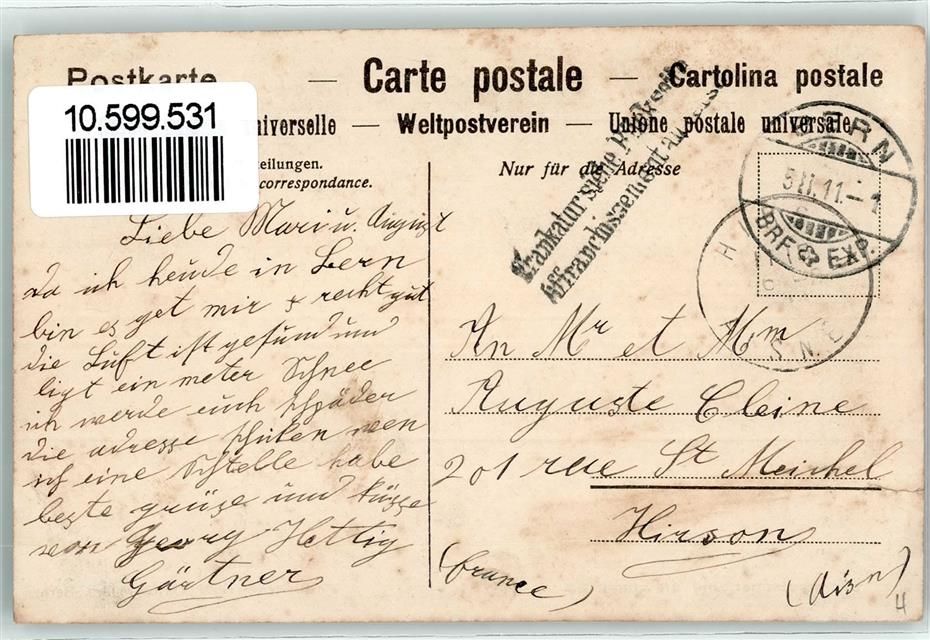 Postkarte — Carte postale — Cartolina postale
10.599.531
niverselle — Weltpostverein — Unione postale universale
eilungen.
correspondance.
Nur für die Adresse
Frankatur siehe Rückseite
Affranchissement au
BERN
5.II.11.–1
BRF. EXP.
Liebe Mari u. August
da ich heude in Bern
bin es get mir & recht gut
die Luft ist gesund und
ligt ein meter Schnee
ich werde euch schpäder
die adresse schiken wen
ich eine Schtelle habe
beste grüze und küsse
von Georg Hettig
Gärtner
An Mr et Mm
Auguste Cleine
201 rue St Meichel
Hirson
(france)
(Aisn)
4